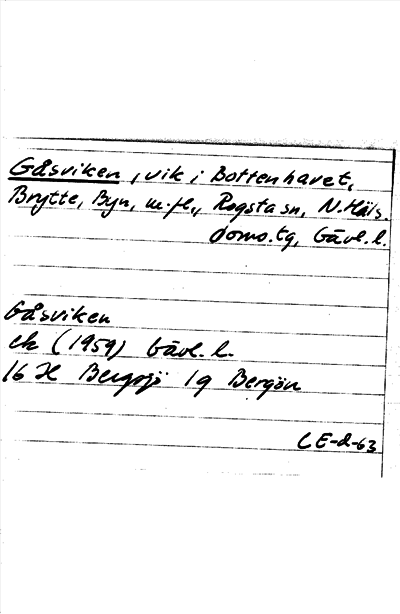 Gåsviken, vik i Bottenhavet,
Brytte, Byn, m.fl., Rogsta sn, N. Häls.
doms.tg, Gävl. l.
Gåsviken
ek (1959) Gävl. l.
16 H Bergsjö 1g Bergön
CE-d-63